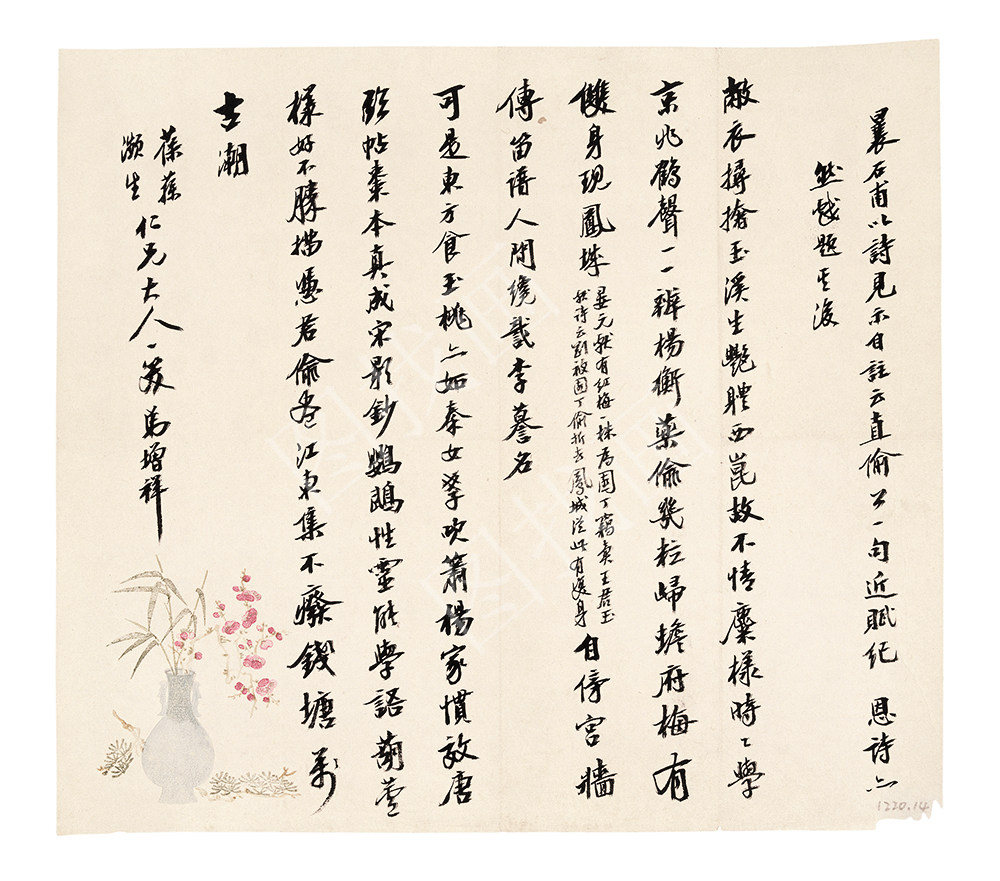 曩石甫以詩見示自註云直偷公一句近賦紀恩詩亦
然戲題其後
敝衣撏撦玉溪生艷體西崑故不情麋樣時〻學
京兆鶴聲一一辨楊衡藥偷幾粒歸蟾府梅有
雙身現鳳城
晏元獻有紅梅一株為園丁竊賣王君玉
詩云園丁偷折去鳳城從此有雙身
自倚宮牆
傳笛譜人間繞識李謩名
可是東方食玉桃亦如秦女學吹簫楊家慣效唐
臨帖棗本真成宋影鈔鸚鵡性靈能學語葫蘆
樣好不勝描憑君偷卷江東集不廢錢塘萬
古潮
葆葆
瀕生
仁兄大人一笑弟增祥
1220.14